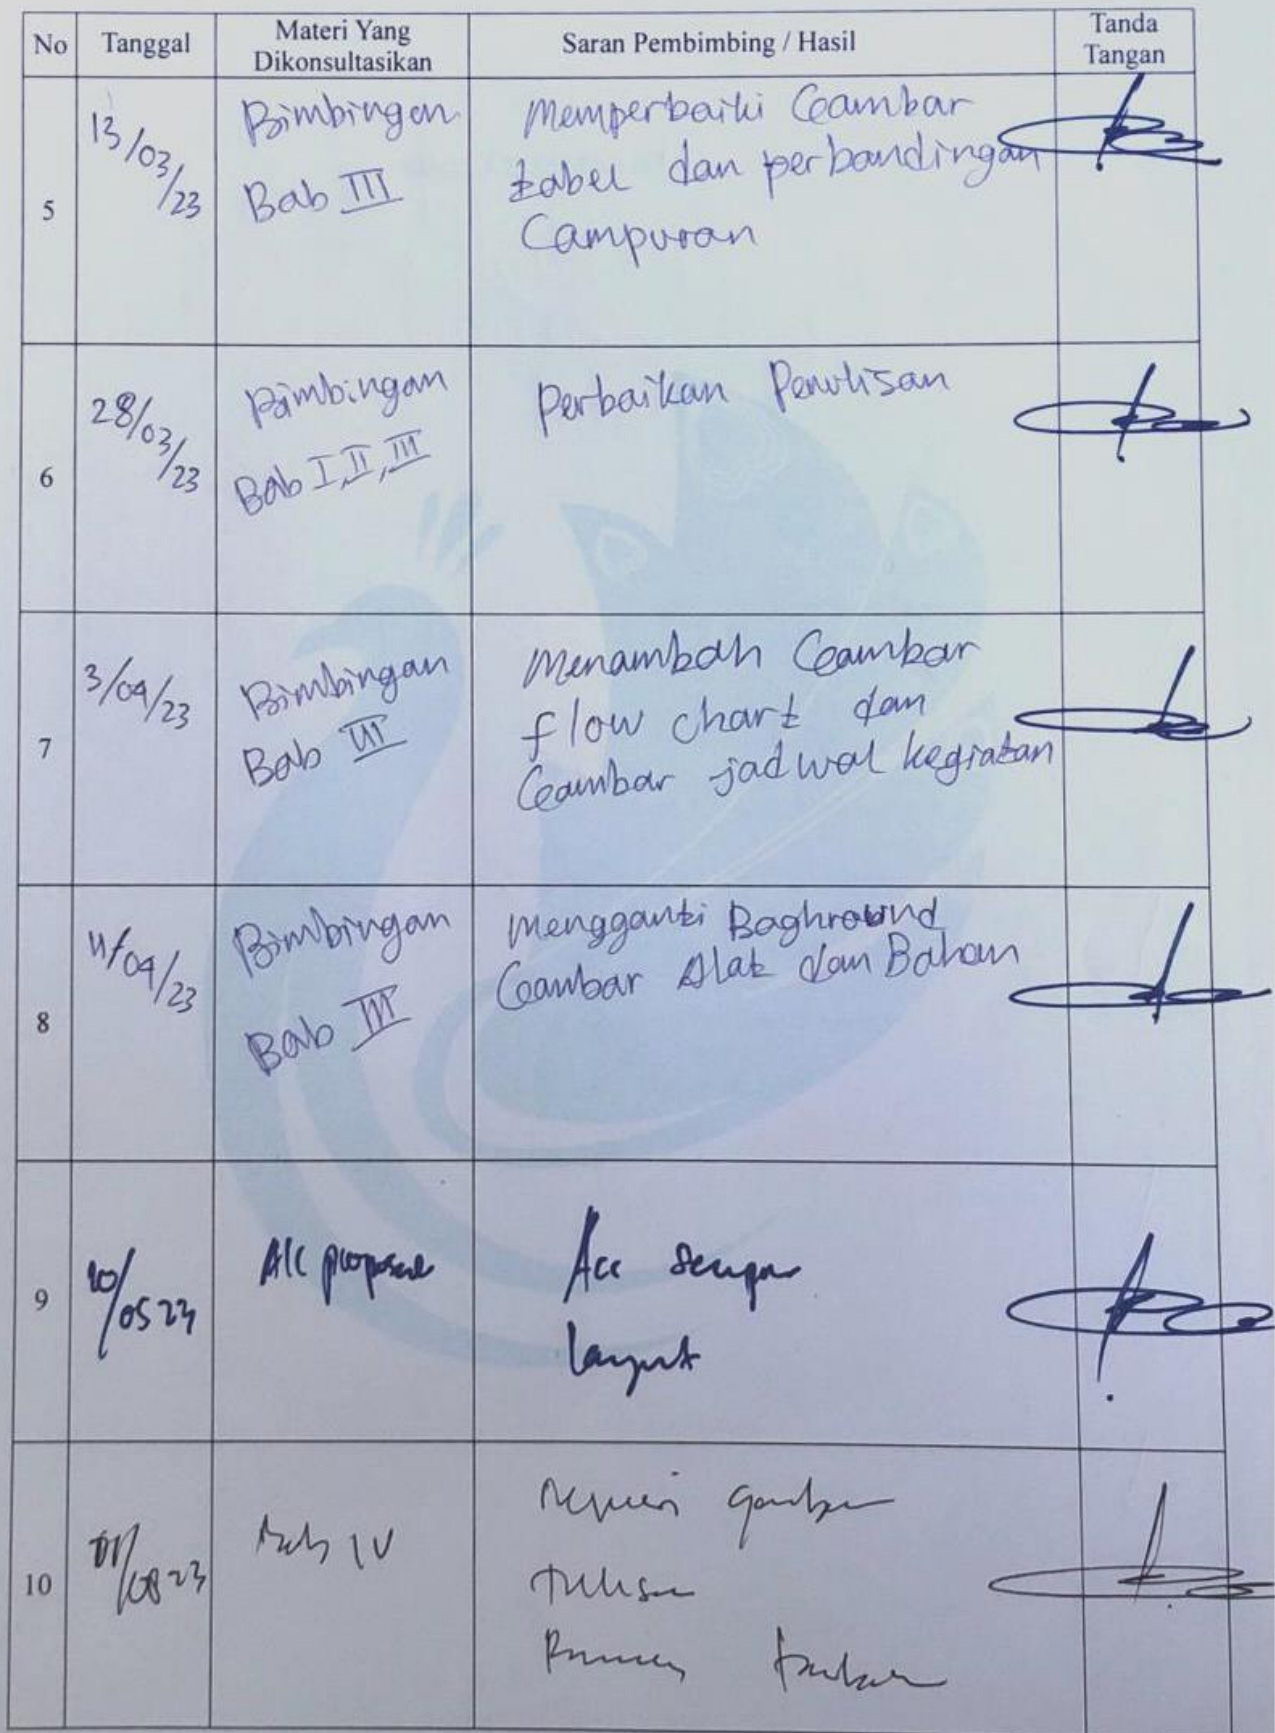 No Tanggal Materi Yang Dikonsultasikan Saran Pembimbing / Hasil Tanda Tangan
5
13/03/23
Bimbingan
Bab III
Memperbaiki Gambar
tabel dan perbandingan
Campuran
6
28/03/23
Bimbingan
Bab I, II, III
Perbaikan Penulisan
7
3/04/23
Bimbingan
Bab III
Menambah Gambar
flow chart dan
Gambar jadwal kegiatan
8
11/04/23
Bimbingan
Bab III
Mengganti Baghround
Gambar Alat dan Bahan
9
/05 23
Acc proposal
Acc
Lanjut
10
01/08 23
Bab IV
Revisi gambar
tulisan